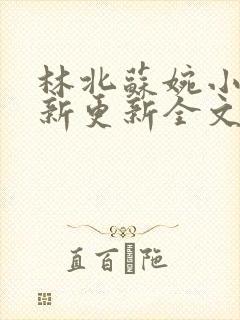 林北蘇婉小
新更新全文
HANGDONG
直百�陁